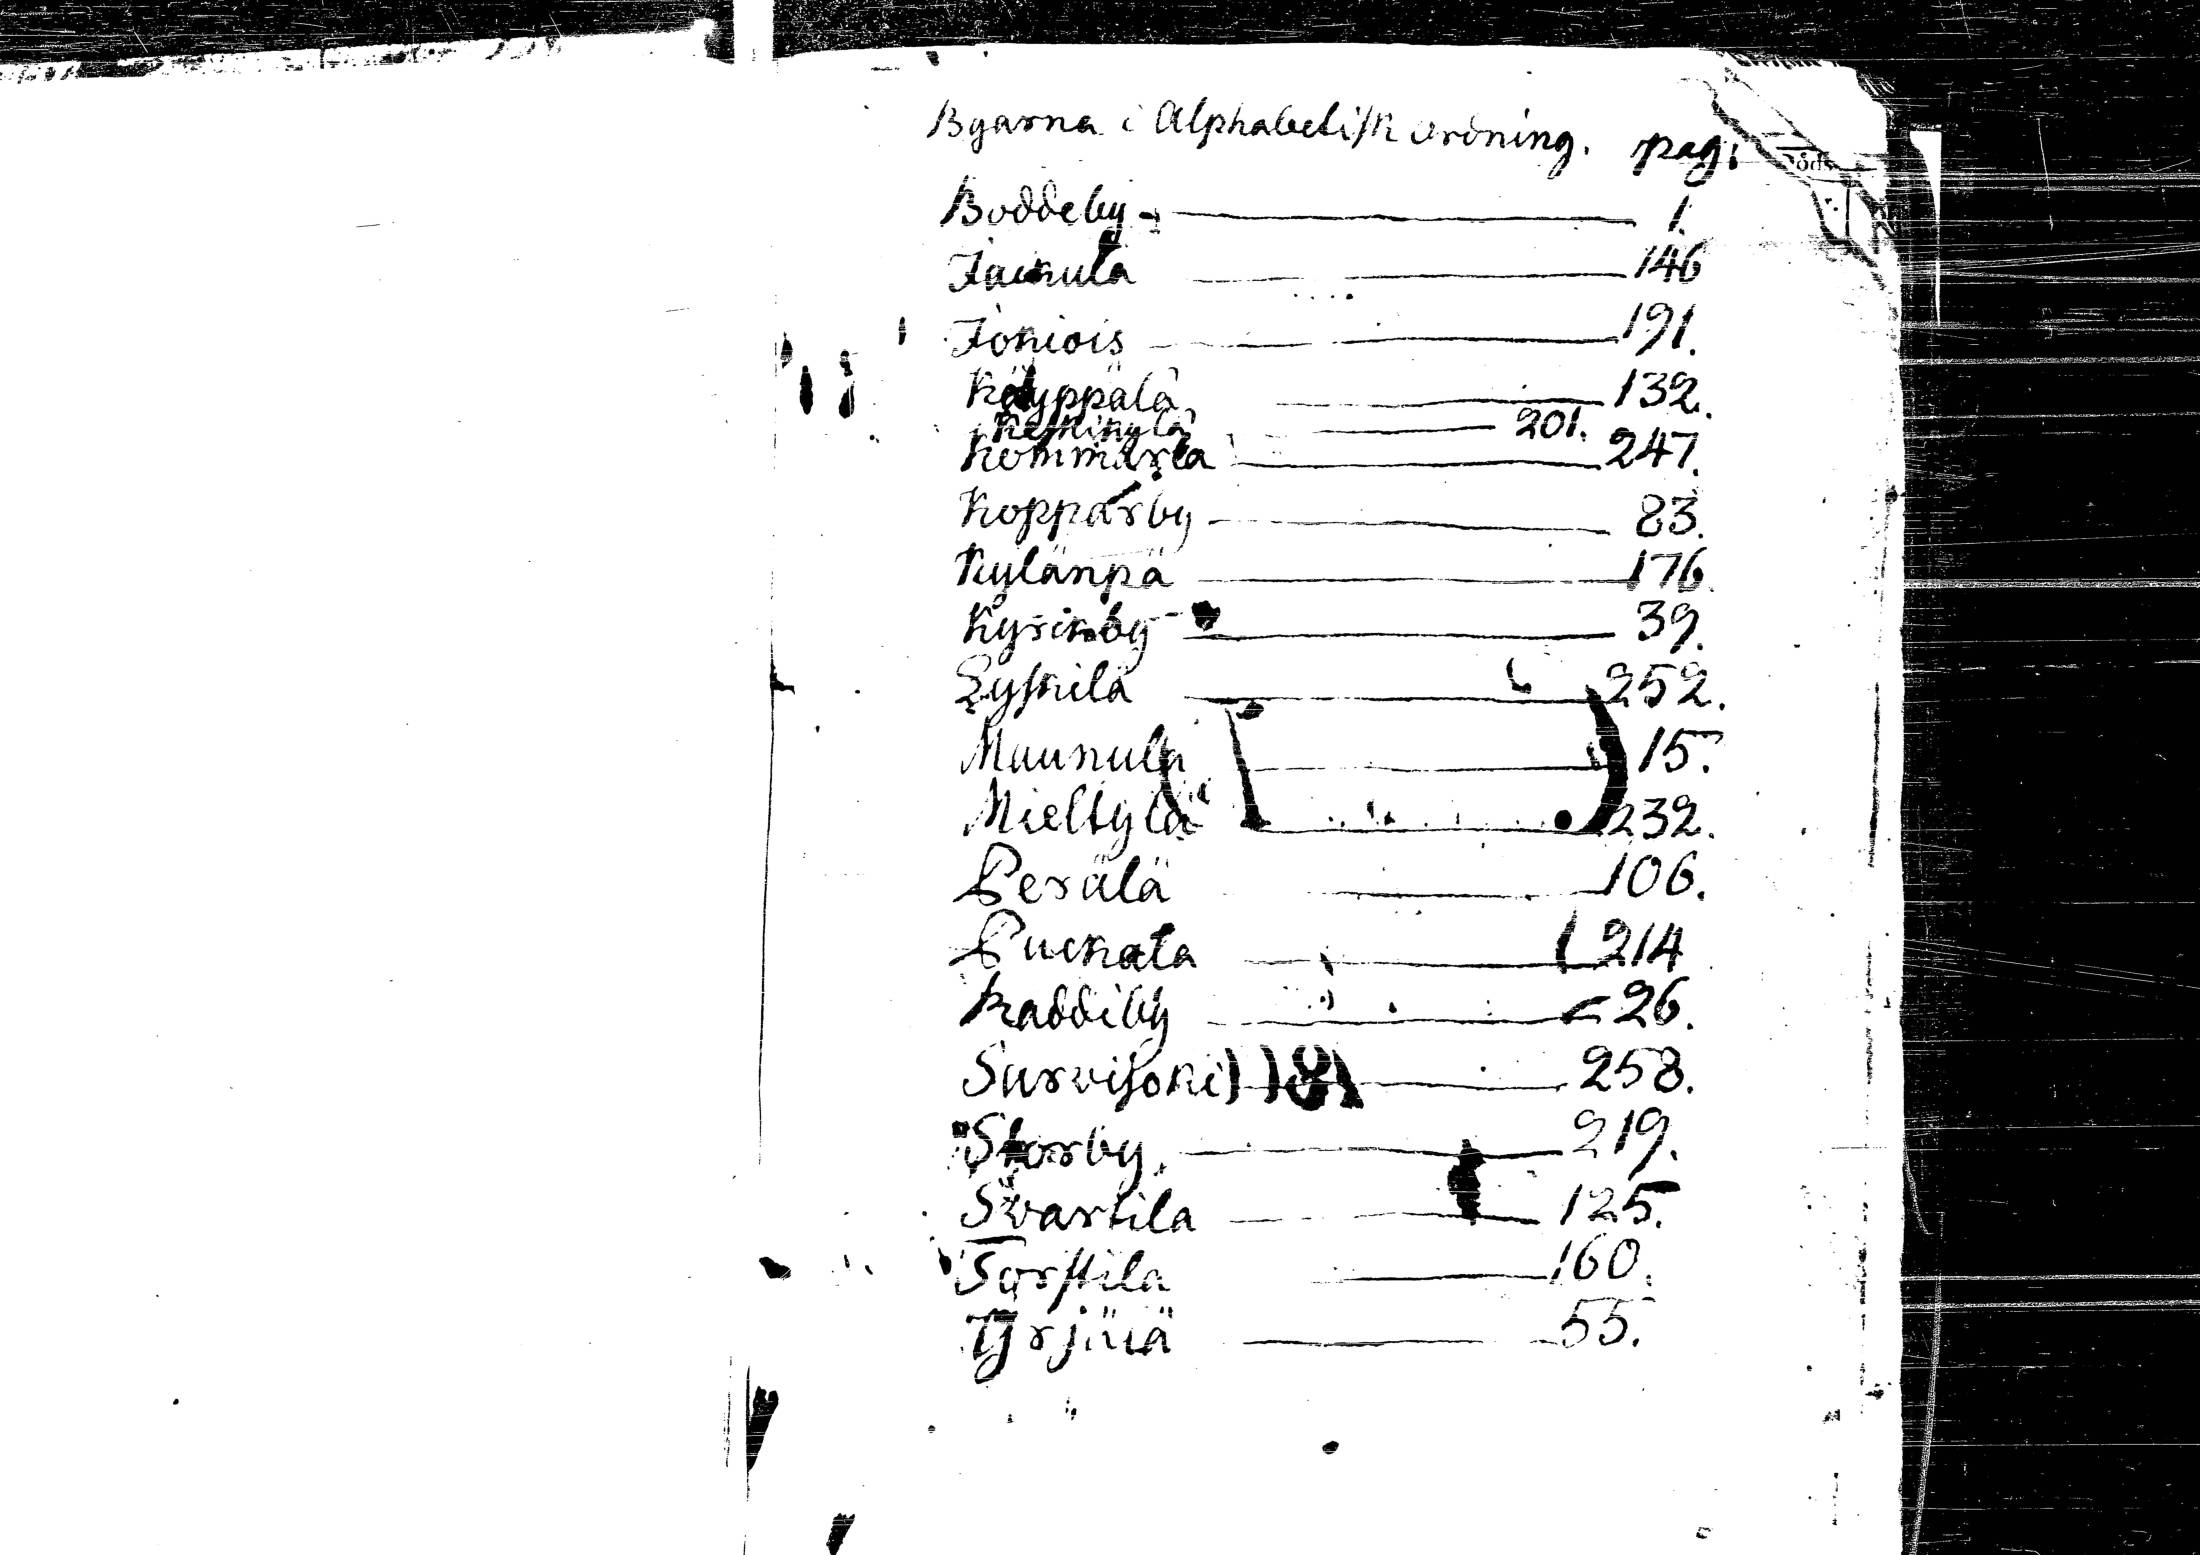 Byarna i Alphabetisk ordning. pag:
Boddeby 1.
Jackula 146
Jokiois 191.
Käyppälä 132.
Keskikylä 201.
Kommarla 247.
Koppårby 83.
Kylänpä 176.
Kyrckby 39.
Lyskilä 252.
Maunula 15.
Mieltylä 232.
Perälä 106.
Puckala 214
Raddiby 26.
Survisoki 258.
Storby 219.
Svartila 125.
Torstila 160.
Tyrjälä 55.